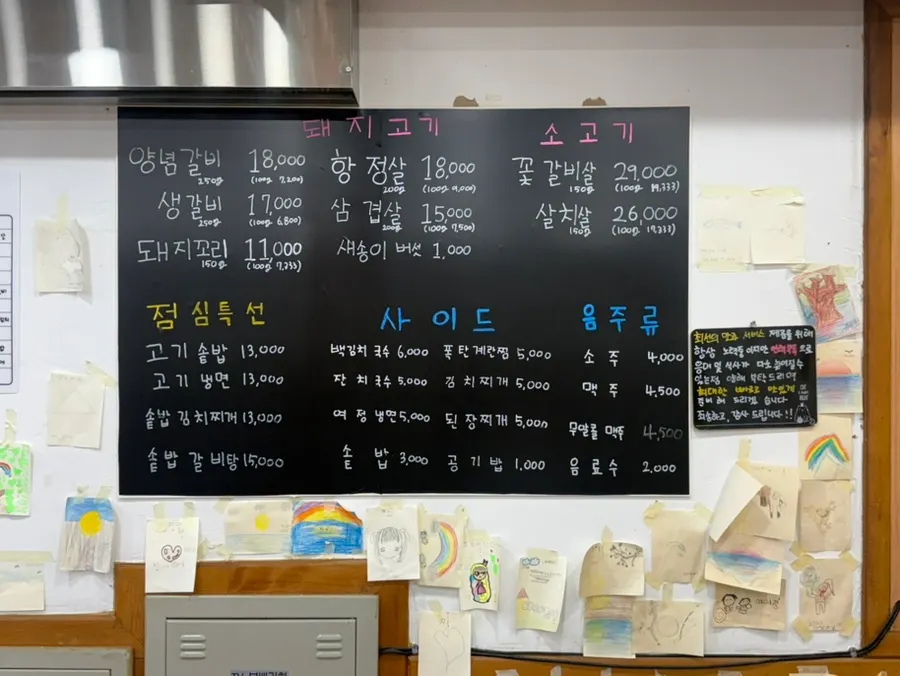 돼지고기
양념갈비 18,000
250g (100g 7,200)
생갈비 17,000
250g (100g 6,800)
돼지꼬리 11,000
150g (100g 7,333)
항정살 18,000
200g (100g 9,000)
삼겹살 15,000
200g (100g 7,500)
새송이 버섯 1,000
소고기
꽃갈비살 29,000
150g (100g 19,333)
살치살 26,000
150g (100g 17,333)
점심특선
고기 솥밥 13,000
고기 냉면 13,000
솥밥 김치찌개 13,000
솥밥 갈비탕 15,000
사이드
백김치 국수 6,000 폭탄계란찜 5,000
잔치국수 5,000 김치찌개 5,000
여정냉면 5,000 된장찌개 5,000
솥밥 3,000 공기밥 1,000
음주류
소주 4,000
맥주 4,500
무알콜 맥주 4,500
음료수 2,000
최선의 맛과 서비스 제공을 위해
항상 노력을 하지만 으로
응대 및 식사가 다소 늦어질수
있는점 양해 부탁드리며
최대한 빠르고 맛있게
준비해 드리겠습니다
죄송하고, 감사드립니다!!